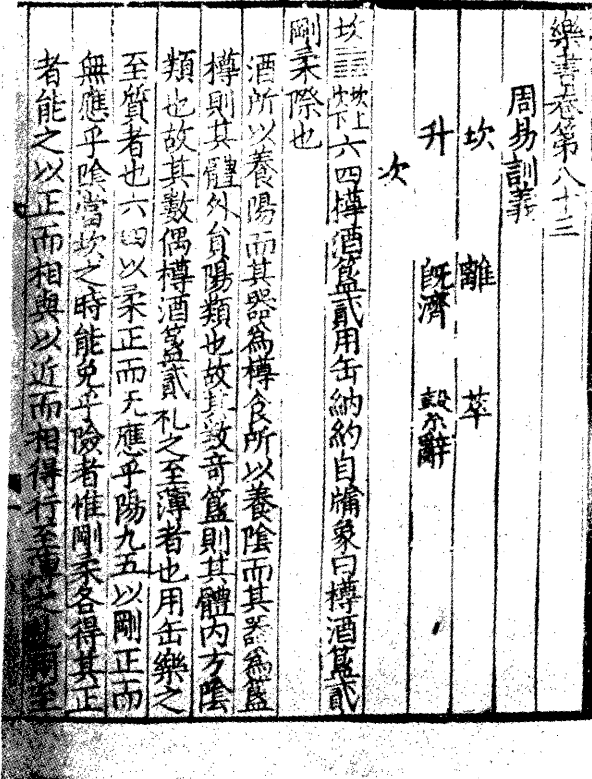 樂書卷第八十三
周易訓義
坎　離　萃
升　旣濟　繫辭
坎
坎䷜坎上坎下六四樽酒簋貳用缶納約自牖象曰樽酒簋貳
剛柔際也
酒所以養陽而其器爲樽食所以養陰而其器爲簋
樽則其體外員陽類也故其數奇簋則其體內方陰
類也故其數偶樽酒簋貳礼之至薄者也用缶樂之
至質者也六四以柔正而无應乎陽九五以剛正而
無應乎陰當坎之時能免乎險者惟剛柔各得其正
者能之以正而相與以近而相得行至薄之禮用至